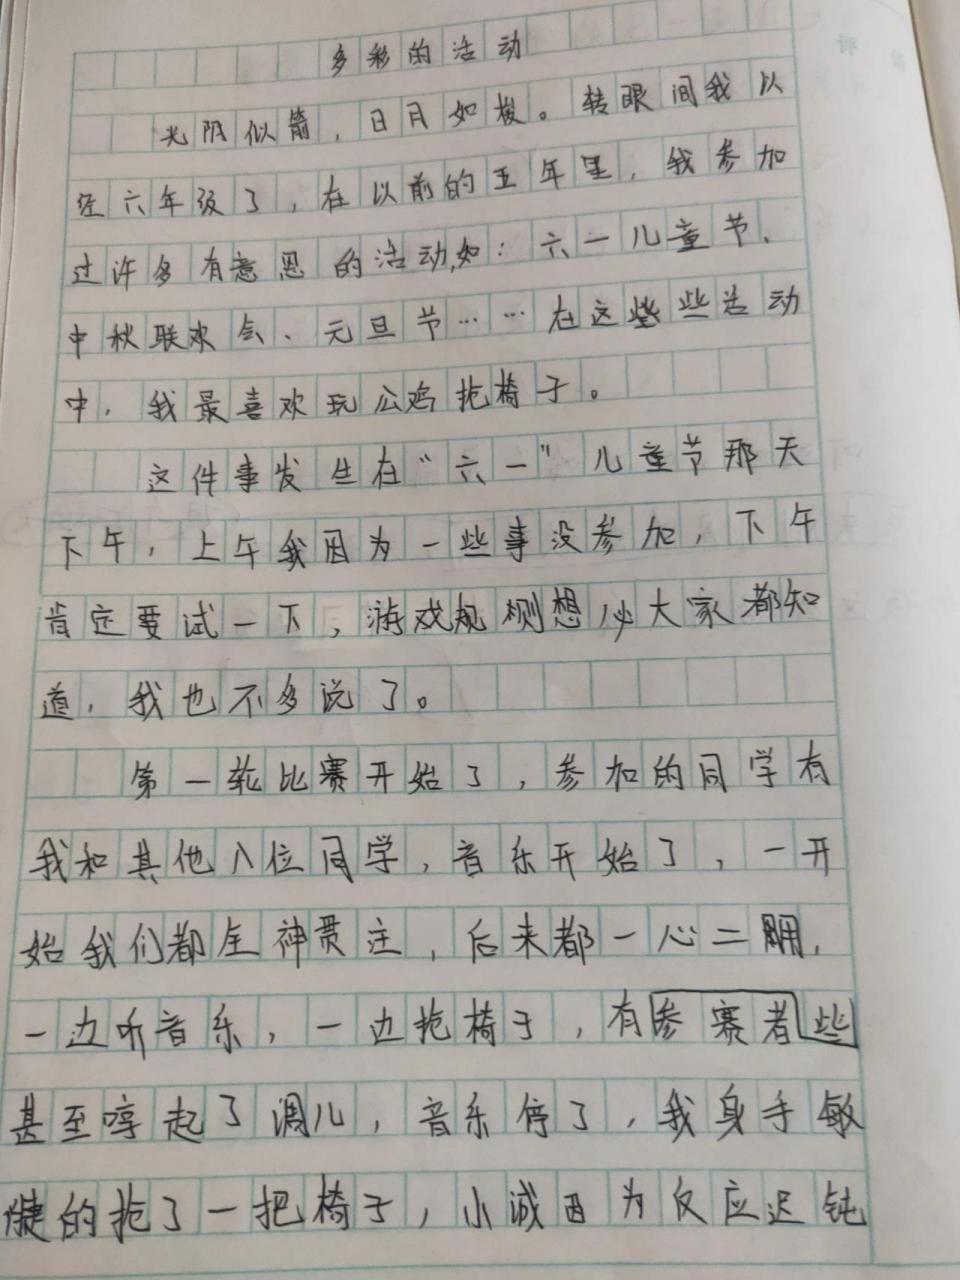 多彩的活动
光阴似箭，日月如梭。转眼间我以
经六年级了，在以前的五年里，我参加
过许多有意思的活动,如：六一儿童节、
中秋联欢会、元旦节……在这些些活动
中，我最喜欢玩公鸡抢椅子。
这件事发生在“六一”儿童节那天
下午，上午我因为一些事没参加，下午
肯定要试一下，游戏规测想必大家都知
道，我也不多说了。
第一轮比赛开始了，参加的同学有
我和其他八位同学，音乐开始了，一开
始我们都全神贯注，后来都一心二用，
一边听音乐，一边抢椅子，有参赛者些
甚至哼起了调儿，音乐停了，我身手敏
健的抢了一把椅子，小诚因为反应迟钝